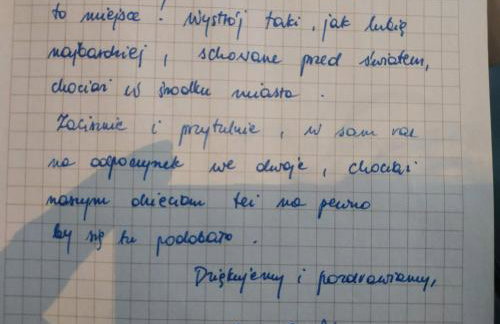 to miejsce! Wystrój taki, jak lubię
najbardziej, schowane przed światem,
chociaż w środku miasta.
Zacisznie i przytulnie, w sam raz
na odpoczynek we dwoje, chociaż
naszym dzieciom też na pewno
by się tu podobało.
Dziękujemy i pozdrawiamy,